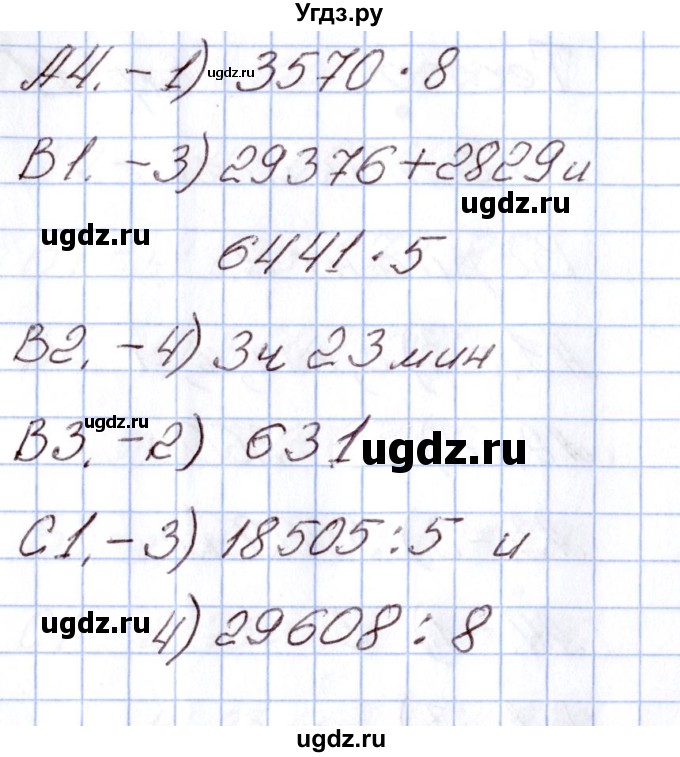 Угдз.ру
А4. - 1) 3570 · 8
ugdz.ru
В1. - 3) 29376 + 2829 и
ugdz.ru
ugdz.ru
6441 · 5
В2. - 4) 3ч 23 мин
ugdz.ru
В3. - 2) 631
ugdz.ru
С1. - 3) 18505 : 5 и
ugdz.ru
4) 29608 : 8
ugdz.ru